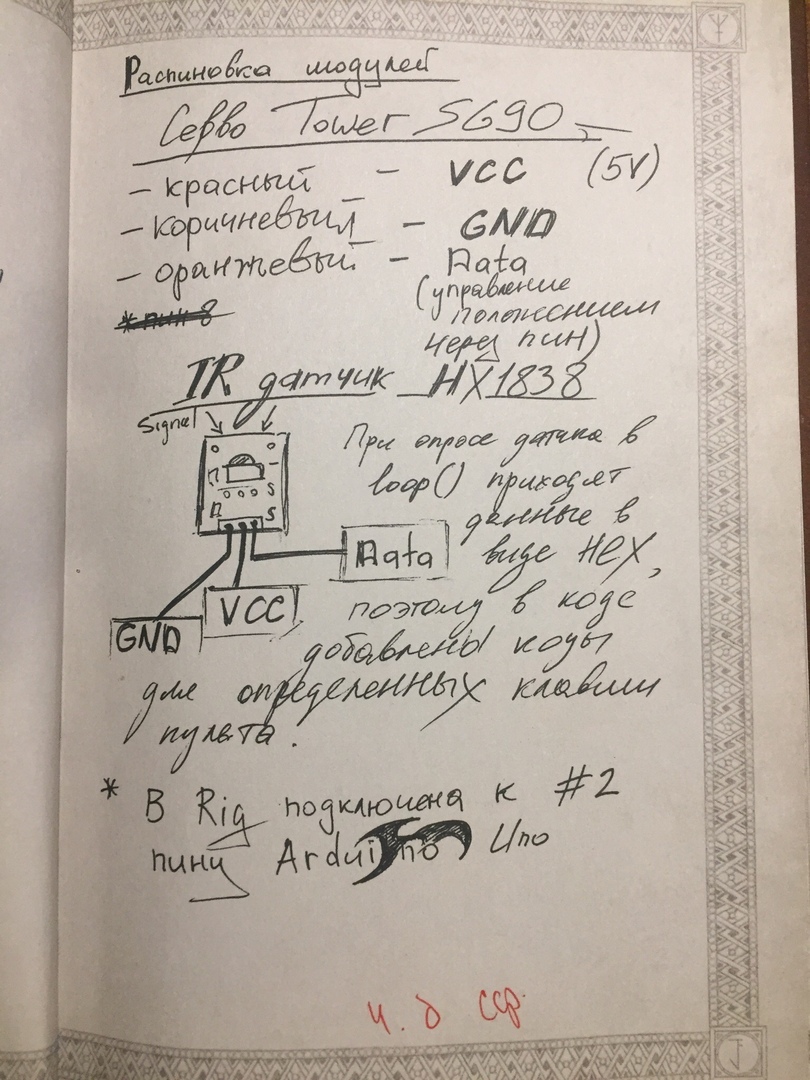 Распиновка модулей
Серво Tower SG90
- красный - VCC (5V)
- коричневый - GND
- оранжевый - Data
(управление
положением
через пин)
* пин 8
IR датчик HX1838
Signal
При опросе датчика в
loop() приходят
данные в
виде HEX,
поэтому в коде
добавлены коды
для определенных клавиш
пульта.
-
S
S
Data
VCC
GND
* В Rig подключена к #2
пину Arduino Uno